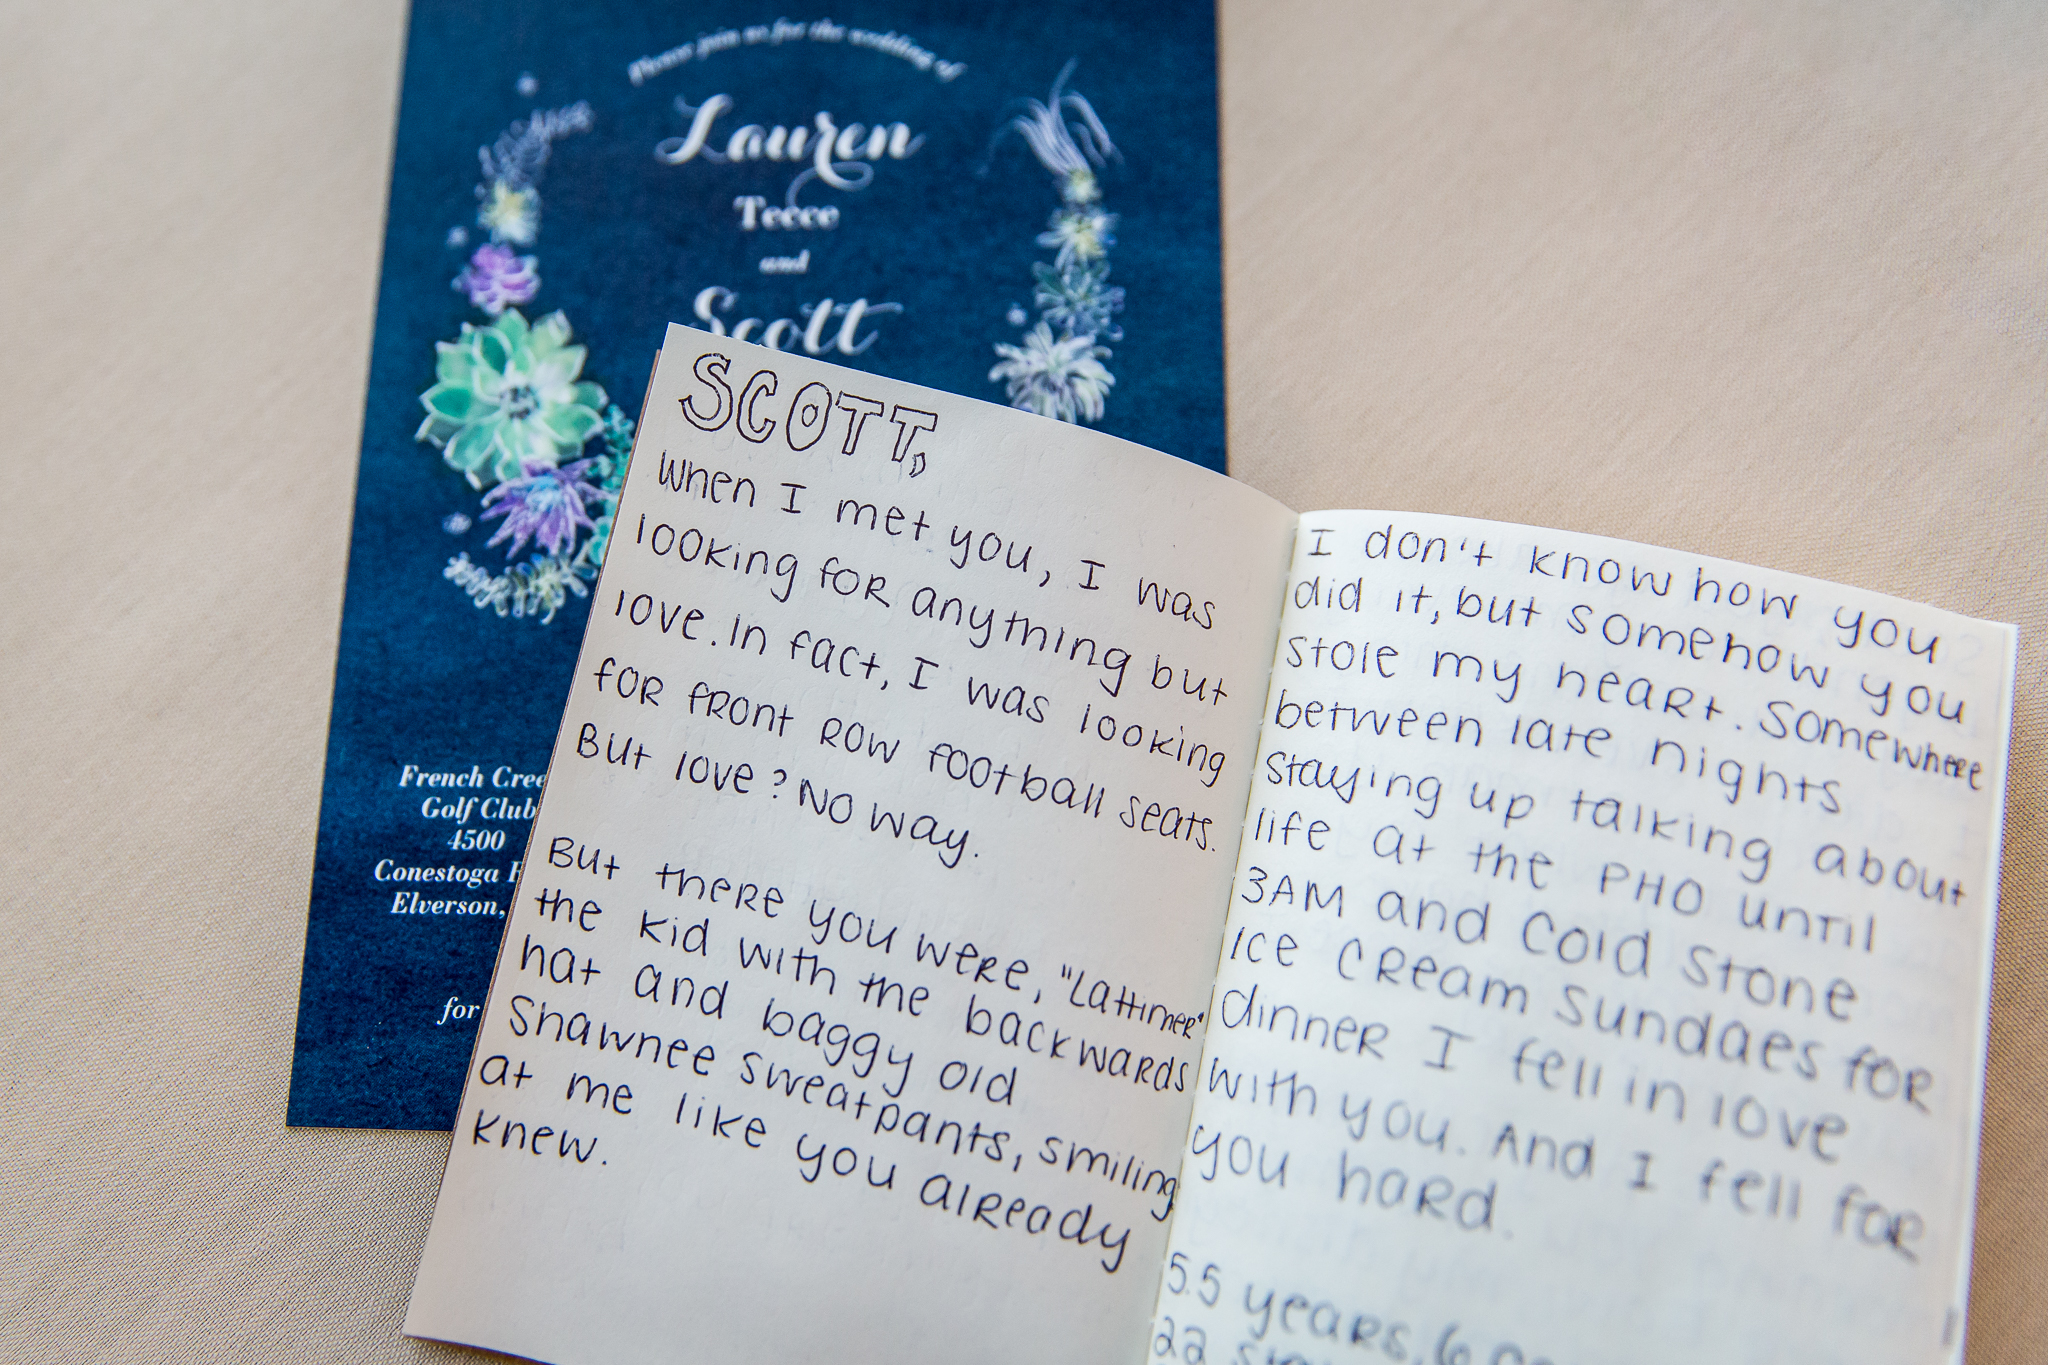 Please join us for the wedding of
Lauren
Teece
and
Scott
French Cree
Golf Club
4500
Conestoga
Elverson,
for
SCOTT,
When I met you, I was
looking for anything but
love. In fact, I was looking
for front row football seats.
But love? No way.
But there you were, "Lattimer"
the kid with the backwards
hat and baggy old
Shawnee sweatpants, smiling
at me like you already
knew.
I don't know how you
did it, but somehow you
stole my heart. Somewhere
between late nights
staying up talking about
life at the PHO until
3AM and Cold Stone
Ice Cream Sundaes for
dinner I fell in love
with you. And I fell for
you hard.
5.5 years, 6
22